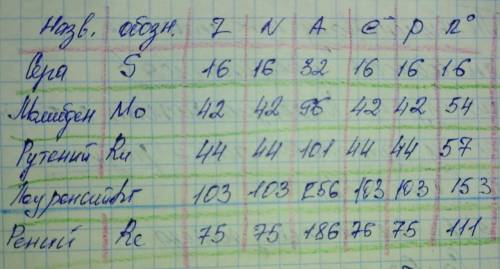 Назв. обозн. Z N A e⁻ p n°
Сера S 16 16 32 16 16 16
Молибден Mo 42 42 96 42 42 54
Рутений Ru 44 44 101 44 44 57
103 103 256 103 103 153
Рений Re 75 75 186 76 75 111